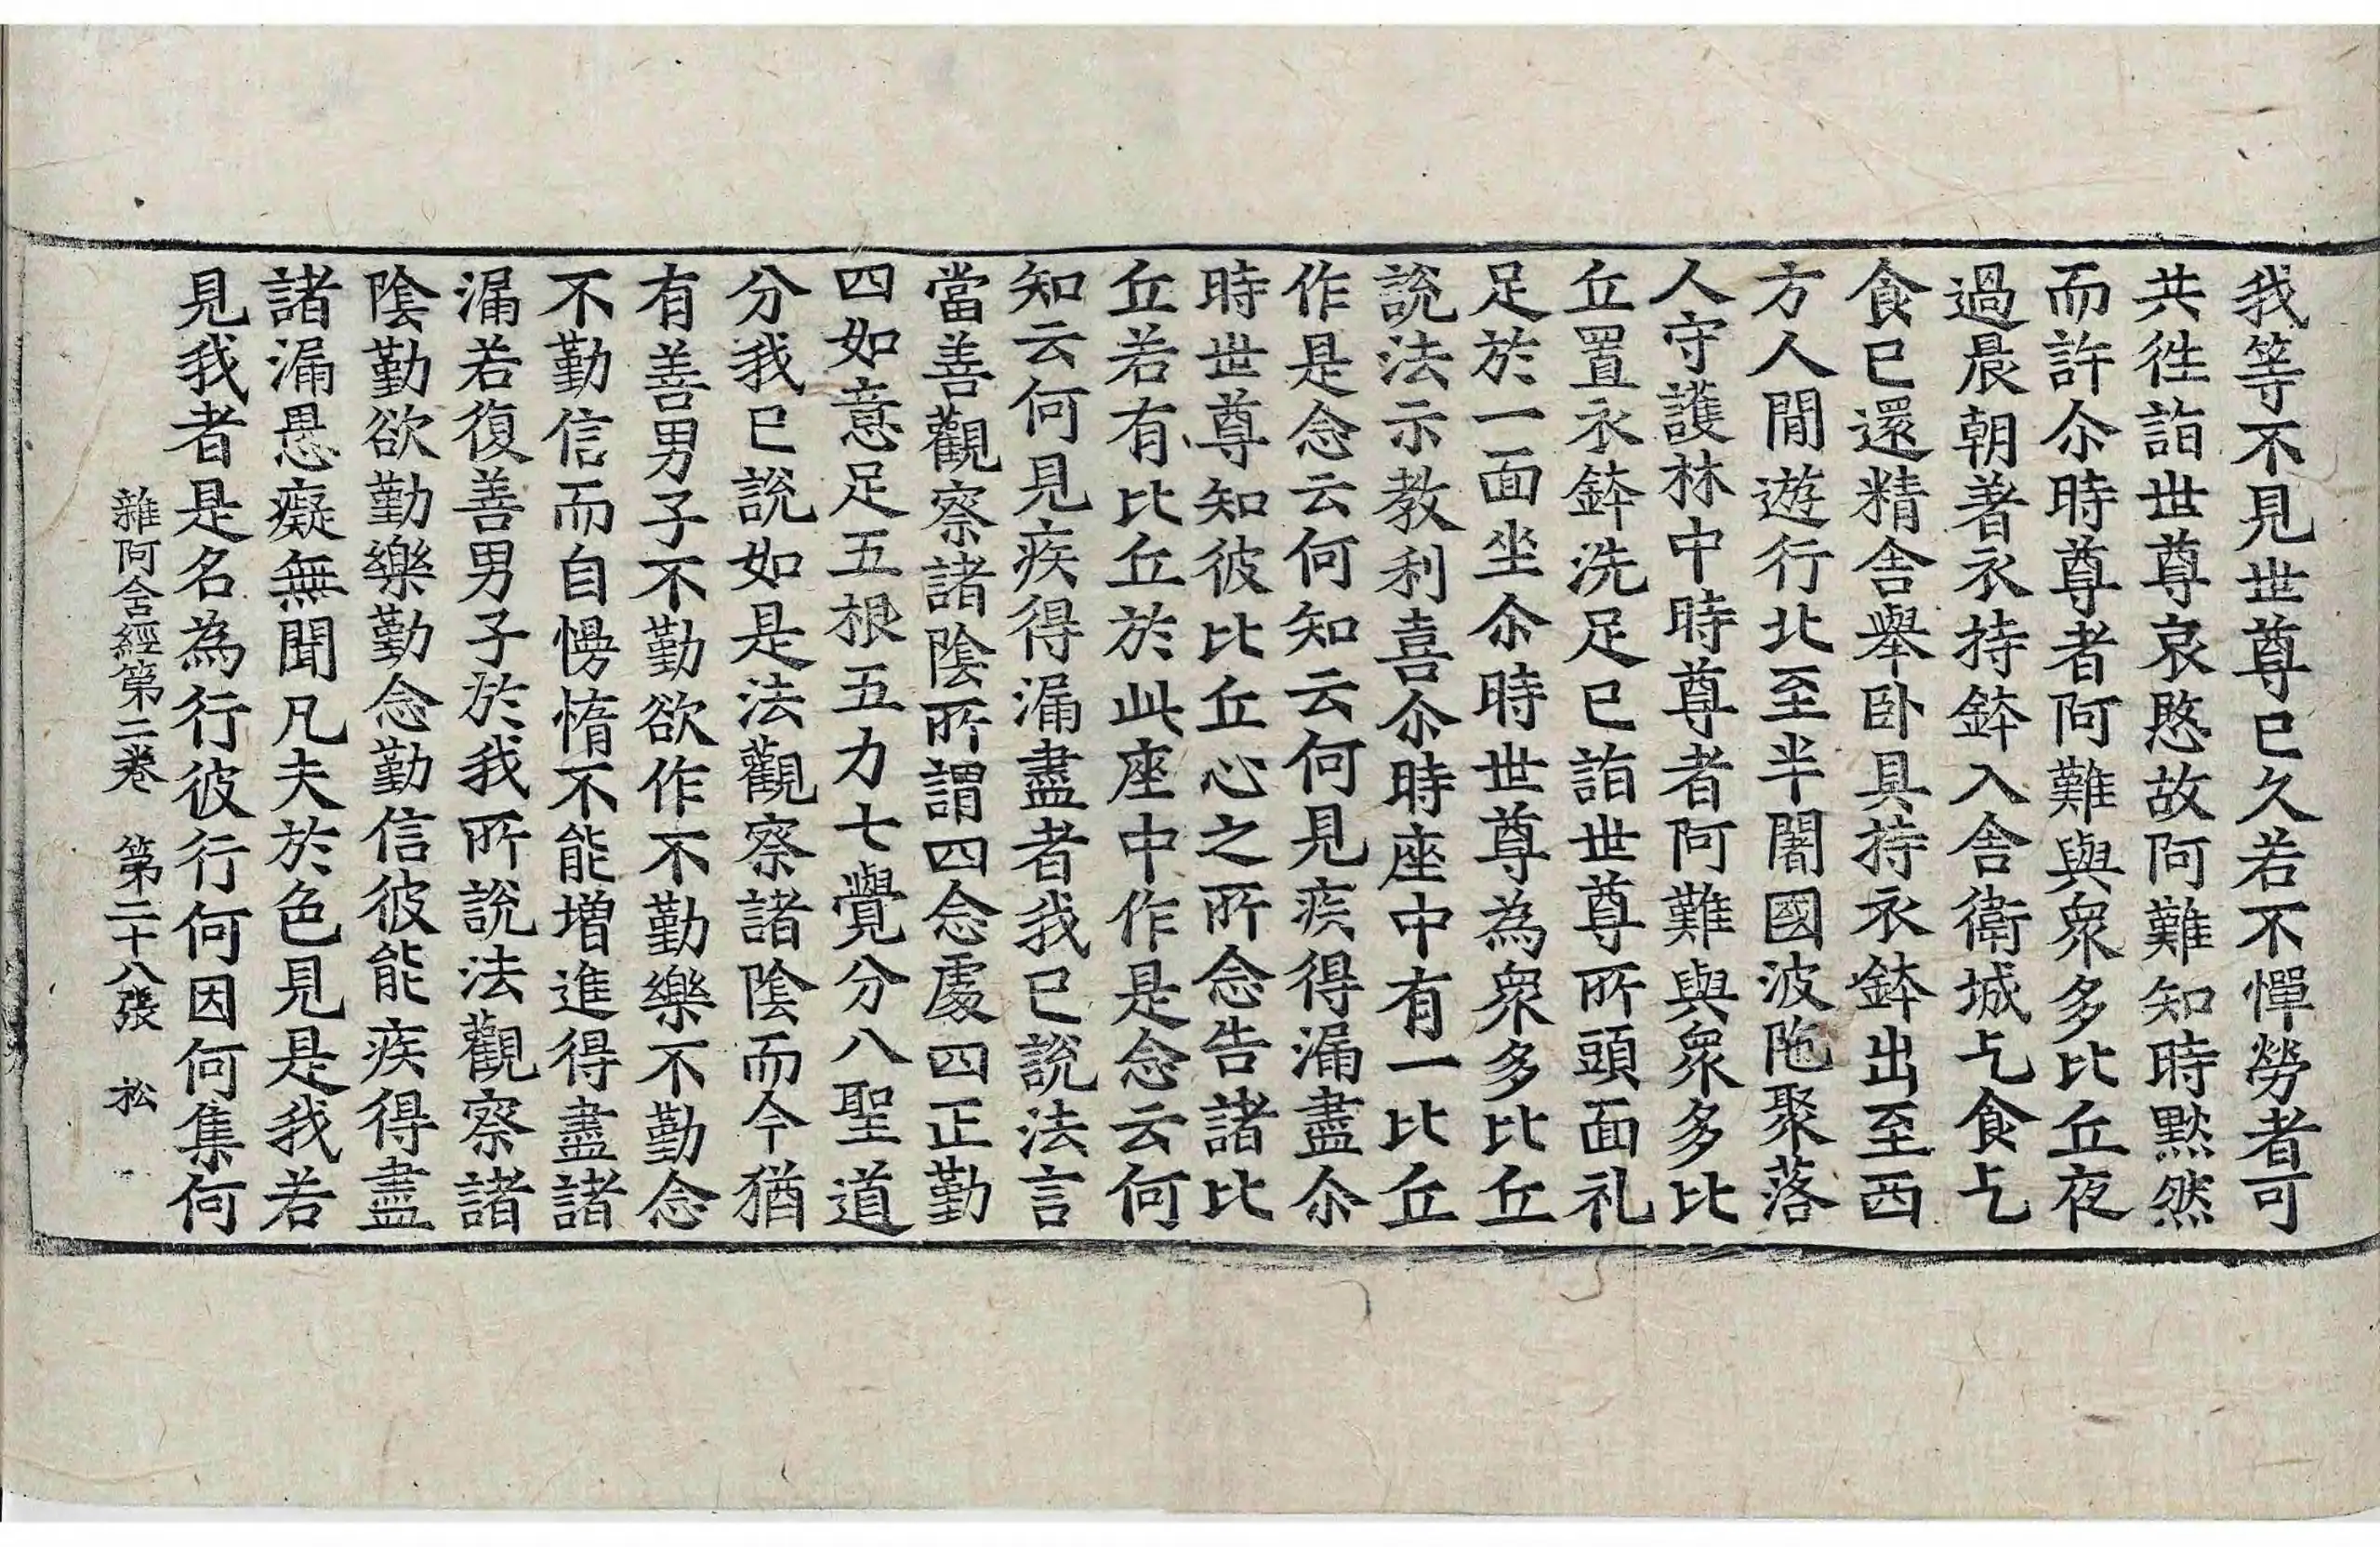 我等不見世尊已久若不憚勞者可
共徃詣世尊哀愍故阿難知時黙然
而許尒時尊者阿難與衆多比丘夜
過晨朝著衣持鉢入舎衛城乞食乞
食已還精舎舉卧具持衣鉢出至西
方人閒遊行北至半闍國波陁聚落
人守護林中時尊者阿難與衆多比
丘置衣鉢洗足已詣世尊所頭面礼
足於一面坐尒時世尊為衆多比丘
說法示教利喜尒時座中有一比丘
作是念云何知云何見疾得漏盡尒
時世尊知彼比丘心之所念告諸比
丘若有比丘於此座中作是念云何
知云何見疾得漏盡者我已說法言
當善觀察諸陰所謂四念處四正勤
四如意足五根五力七覺分八聖道
分我已說如是法觀察諸陰而今猶
有善男子不勤欲作不勤樂不勤念
不勤信而自慢惰不能增進得盡諸
漏若復善男子於我所說法觀察諸
陰勤欲勤樂勤念勤信彼能疾得盡
諸漏愚癡無聞凡夫於色見是我若
見我者是名為行彼行何因何集何
雜阿含經第二卷 第二十八張 松